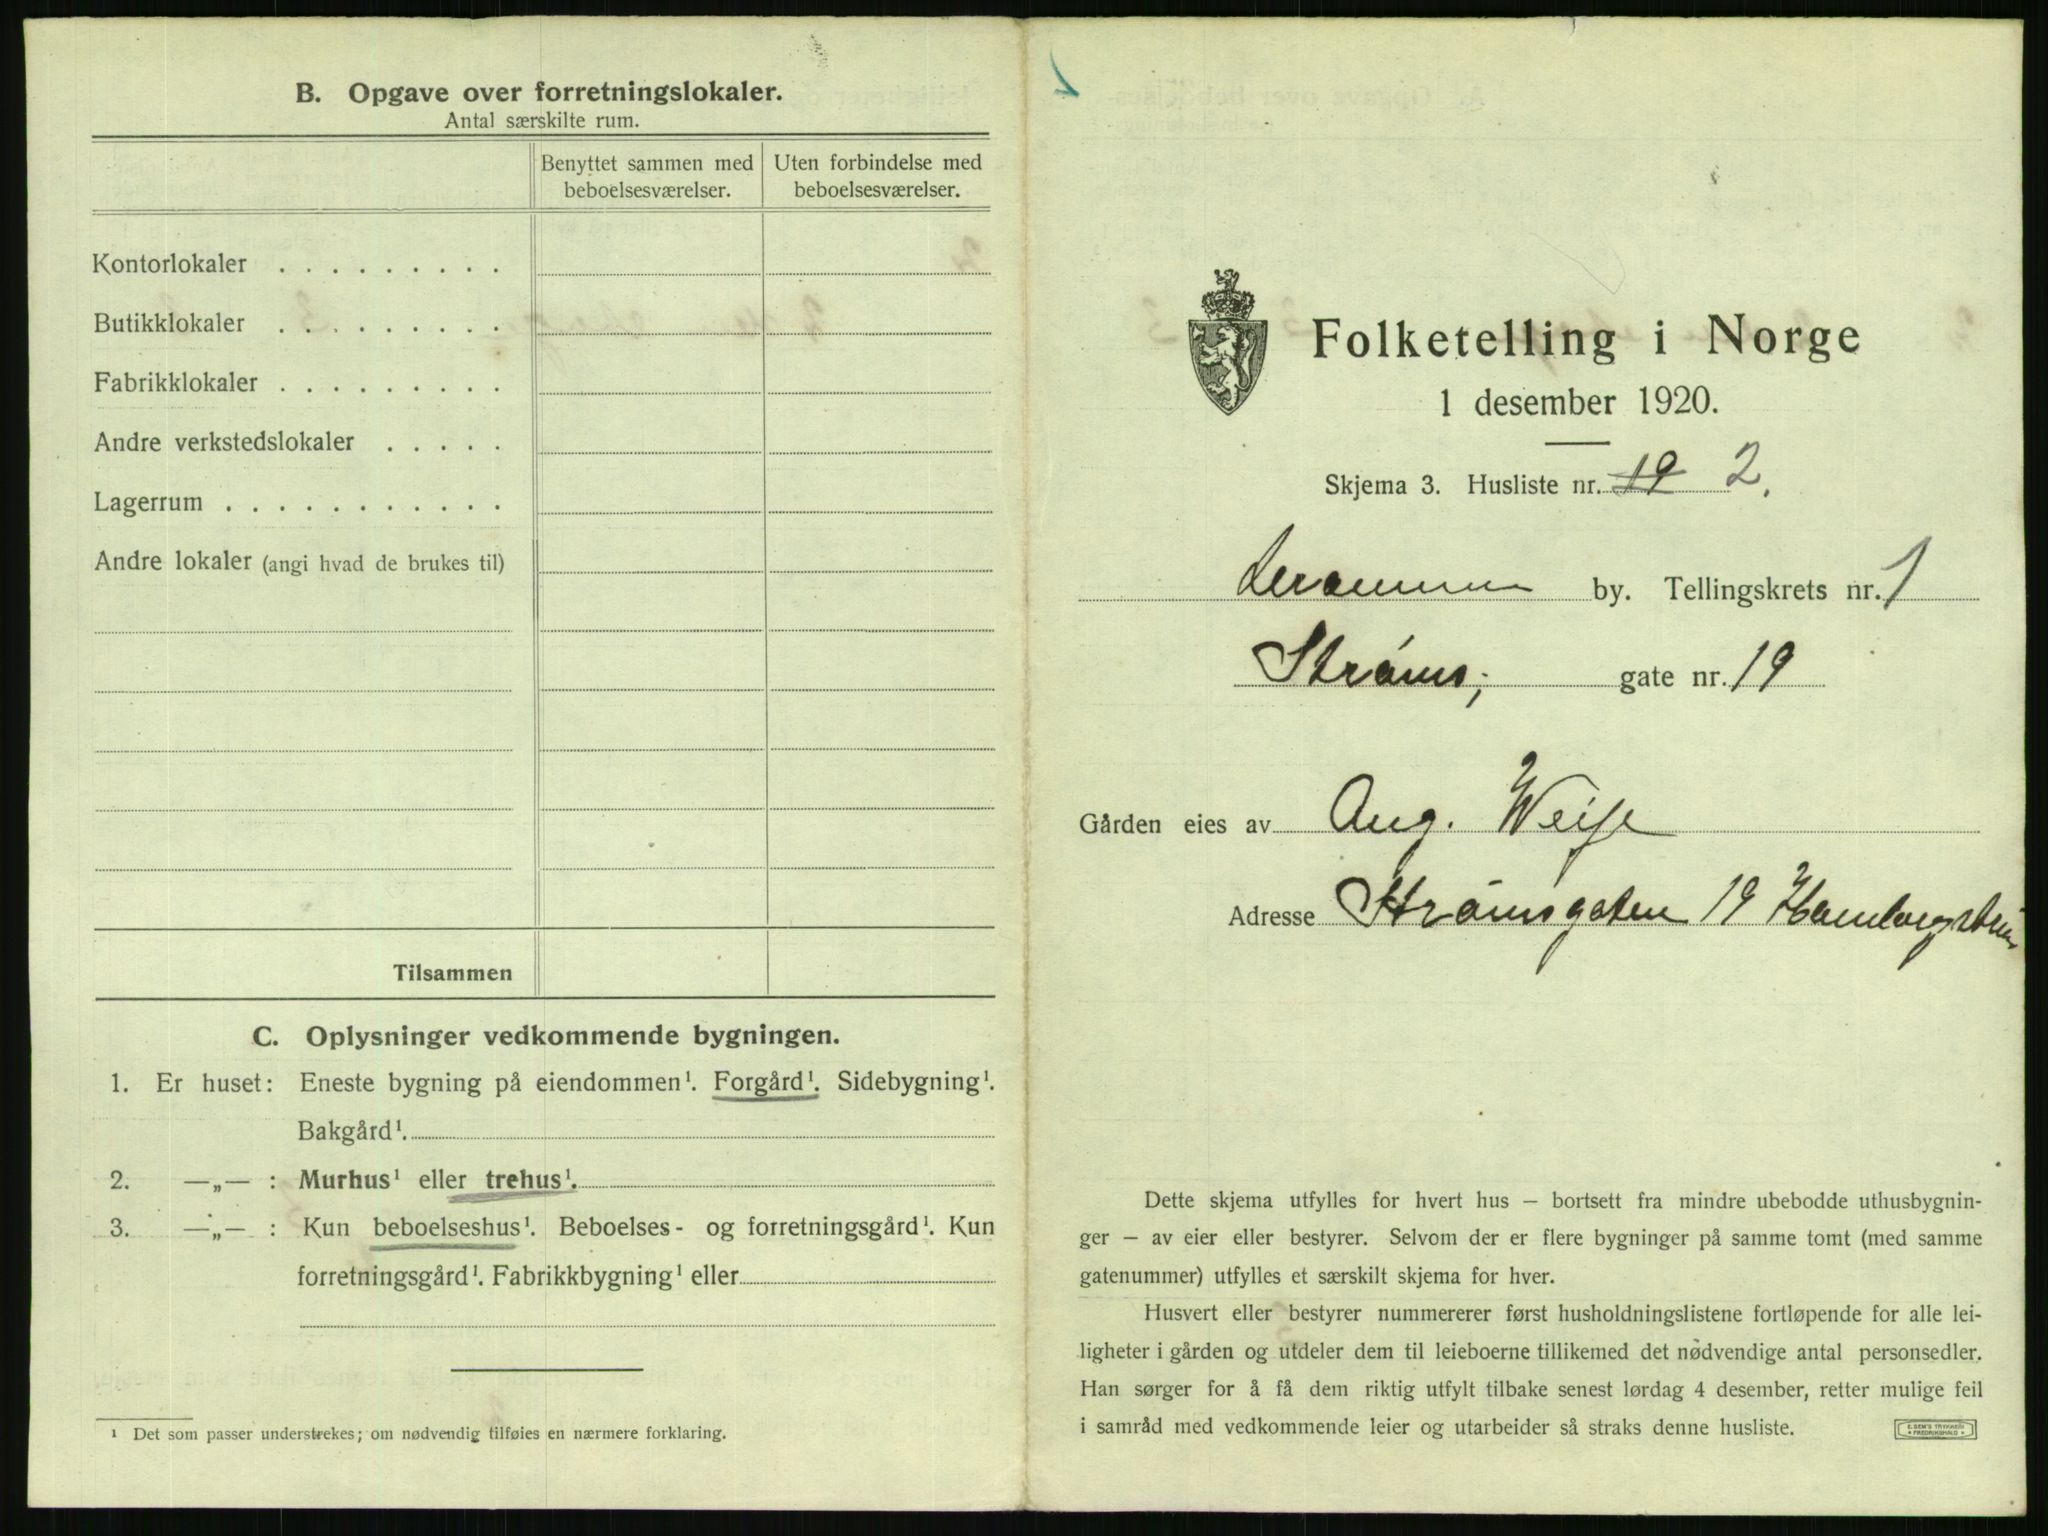 B. Opgave over forretningslokaler.
Antal særskilte rum.
Benyttet sammen med beboelsesværelser.
Uten forbindelse med beboelsesværelser.
Kontorlokaler . . . . . . . . .
Butikklokaler . . . . . . . . .
Fabrikklokaler . . . . . . . . .
Andre verkstedslokaler . . . . .
Lagerrum . . . . . . . . . . .
Andre lokaler (angi hvad de brukes til)
Tilsammen
C. Oplysninger vedkommende bygningen.
1. Er huset: Eneste bygning på eiendommen¹. Forgård¹. Sidebygning¹.
Bakgård¹.
2. —„— : Murhus¹ eller trehus¹.
3. —„— : Kun beboelseshus¹. Beboelses- og forretningsgård¹. Kun
forretningsgård¹. Fabrikkbygning¹ eller
¹ Det som passer understrekes; om nødvendig tilføies en nærmere forklaring.
Folketelling i Norge
1 desember 1920.
Skjema 3. Husliste nr. 19 2.
Drammen by. Tellingskrets nr. 1
Strøms; gate nr. 19
Gården eies av Aug. Weise
Adresse Strømsgaten 19 Hamborgstrøm
Dette skjema utfylles for hvert hus — bortsett fra mindre ubebodde uthusbygnin-
ger — av eier eller bestyrer. Selvom der er flere bygninger på samme tomt (med samme
gatenummer) utfylles et særskilt skjema for hver.
Husvert eller bestyrer nummererer først husholdningslistene fortløpende for alle lei-
ligheter i gården og utdeler dem til leieboerne tillikemed det nødvendige antal personsedler.
Han sørger for å få dem riktig utfylt tilbake senest lørdag 4 desember, retter mulige feil
i samråd med vedkommende leier og utarbeider så straks denne husliste.
E. SEM'S TRYKKERI
FREDRIKSHALD